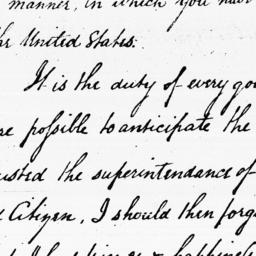 manner, in which you have
the United States.
It is the duty of every goo
re possible to anticipate the
usted the superintendance of
Citizen, I should then forg